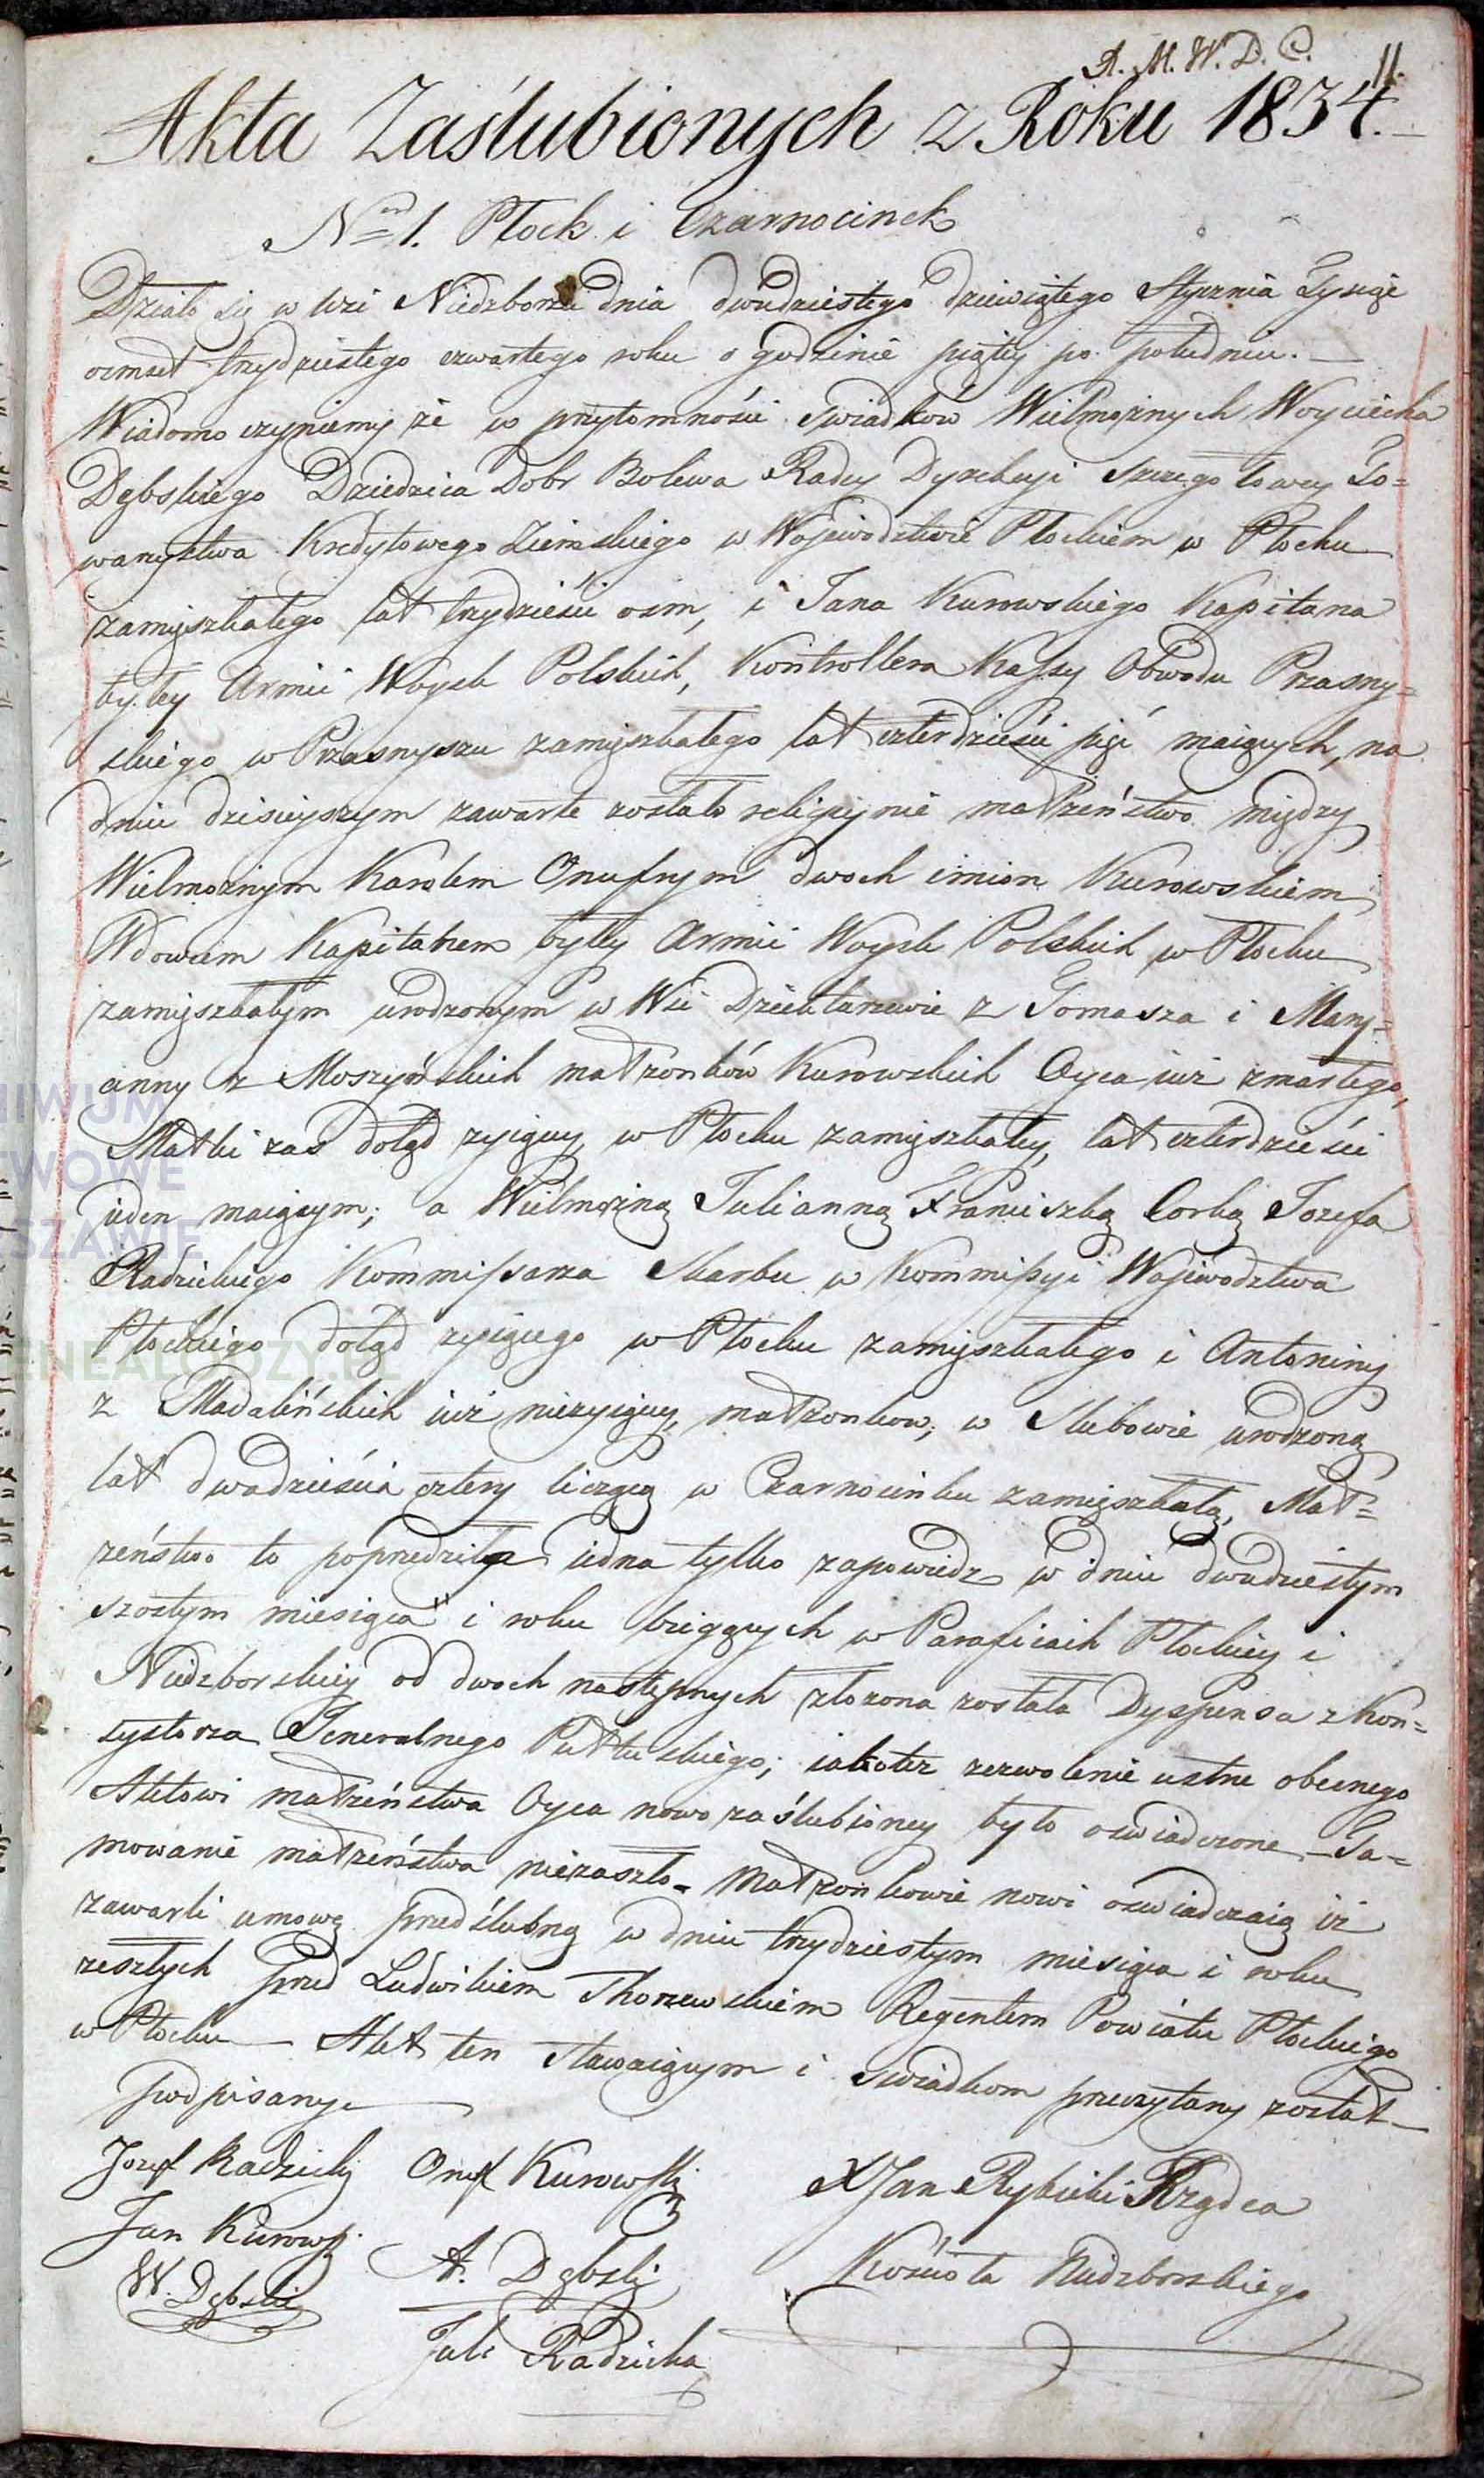 A. M. W. D. C. 11.
Akta Zaślubionych z Roku 1834.
Nro 1. Płock i Czarnocinek
Działo się w Wsi Niedzborzu dnia dwudziestego dziewiątego Stycznia Tysiąc
osmset trzydziestego czwartego roku o godzinie piątey po południu. —
Wiadomo czyniemy że w przytomności Swiadków Wielmożnych Woyciecha
Dębskiego Dziedzica Dobr Bolewa Radcy Dyrekcyi Szczegołowey To=
warzystwa Kredytowego Ziemskiego w Wojewodztwie Płockiem w Płocku
zamięszkałego lat trzydzieści osm, i Jana Kurowskiego Kapitana
byłey Armii Woysk Polskich, Kontrollera Kassy Obwodu Przasny=
skiego w Przasnyszu zamięszkałego lat czterdzieści pięć maiących, na
dniu dzisieyszym zawarte zostało religijnie małżeństwo między
Wielmożnym Karolem Onufrym dwoch imion Kurowskiem
Wdowcem Kapitanem byłey Armii Woysk Polskich w Płocku
zamięszkałym urodzonym w Wsi Dziektarzewie z Tomasza i Mary=
anny z Moszyńskich małżonków Kurowskich Oyca iuż zmarłego,
Matki zas dotąd zyiącey, w Płocku zamięszkałey, lat czterdzieści
ieden maiącym; a Wielmożną Julianną Franciszką Corką Jozefa
Radzickiego Kommissarza Skarbu w Kommissyi Wojewodztwa
Płockiego dotąd zyiącego w Płocku zamięszkałego i Antoniny
z Madalińskich iuż niezyiącey, małżonkow, w Słubowie urodzoną
lat dwadzieścia cztery liczącą w Czarnocinku zamięszkałą, Mał=
żeństwo to poprzedziła iedna tylko zapowiedz w dniu dwudziestym
szostym miesiąca i roku bieżących w Parafiiaih Płockiey i
Niedzborskiey od dwoch następnych złożona została Dyspensa z Kon=
systorza Jeneralnego Pułtuskiego; iakoteż zezwolenie ustne obecnego
Aktowi małżeństwa Oyca nowo zaślubioney było oświadczone — Ta=
mowanie małżeństwa niezaszło — Małżonkowie nowi oświadczaią iż
zawarli umowę przedślubną w dniu trzydziestym miesiąca i roku
zeszłych przed Ludwikiem Thorzewskiem Regentem Powiatu Płockiego
w Płocku — Akt ten stawaiącym i swiadkom przeczytany został —
podpisany.
Jozef Radzicki Onuf Kurowski XJan Rybicki Rządca
Jan Kurowski A. Dębski Kościoła Niedzborskiego
W. Dębski
Jul: Radzicka